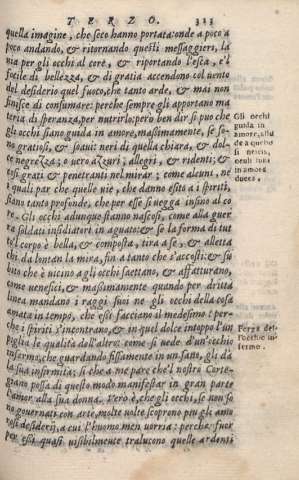 TERZO. 323
quella imagine, che seco hanno portata: onde a poco a
poco andando, & ritornando questi messaggieri, la
via per gli occhi al core, & riportando l'esca, e'l
fucile di bellezza, & di gratia accendono col vento
del desiderio quel fuoco, che tanto arde, & mai non
finisce di consumare: perche sempre gli apportano ma
teria di speranza, per nutrirlo: però ben dir si puo che
gli occhi siano guida in amore, massimamente, se so-
no gratiosi, & soaui: neri di quella chiara, & dol-
ce negrezza; o uero azurri; allegri, & ridenti; &
cosi grati & penetranti nel mirar; come alcuni, ne
i quali par che quelle vie, che danno esito a i spiriti,
siano tanto profonde, che per esse si uegga insino al co
re. Gli occhi adunque stanno nascosi, come alla guer
ra soldati insidiatori in aguato: & se la forma di tut
to'l corpo è bella, & composta, tira a se, & alletta
chi da lontan la mira, fin a tanto che s'accosti: & su
bito che è uicino a gli occhi saettano, & affatturano,
come uenefici, & massimamente quando per dritta
linea mandano i raggi suoi ne gli occhi della cosa
amata in tempo, che essi facciano il medesimo: per-
che i spiriti s'incontrano, & in quel dolce intoppo l'un
piglia le qualità dell'altro: come si uede d'un'occhio
infermo, che guardando fissamente in un sano, gli dà
la sua infirmità; si che a me pare che'l nostro Corte-
giano possa di questo modo manifestar in gran parte
l'amor alla sua donna. Vero è, che gli occhi, se non so
no gouernati con arte, molte volte scoprono piu gli amo
rosi desiderij, a cui l'huomo men uorria: perche fuor
per essi quasi uisibilmente tralucono quelle ardenti
Gli occhi
guida in
amore,
de
in amore
duces.
Forza del-
l'occhio in-
fermo.